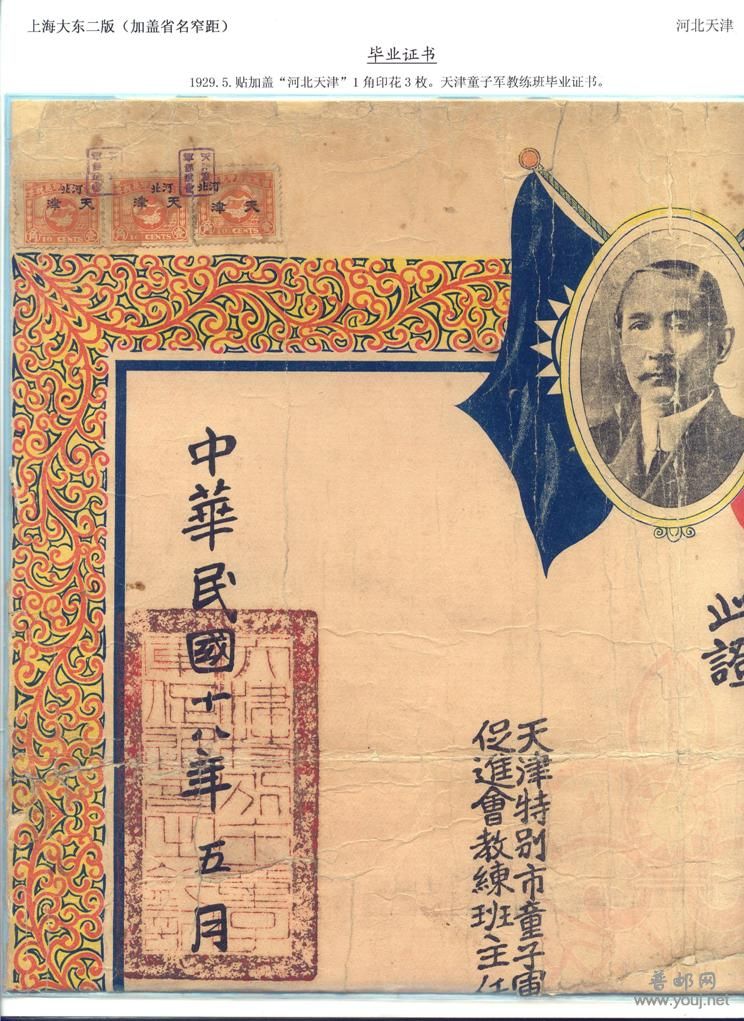 上海大东二版（加盖省名窄距）
河北天津
毕业证书
1929.5.贴加盖“河北天津”1角印花3枚。天津童子军教练班毕业证书。
河北
天津
10 CENTS
河北
天津
10 CENTS
河北
天津
10 CENTS
此
證
天津特别市童子軍
促進會教練班主任
中華民國十八年 五月
普邮网
www.youj.net